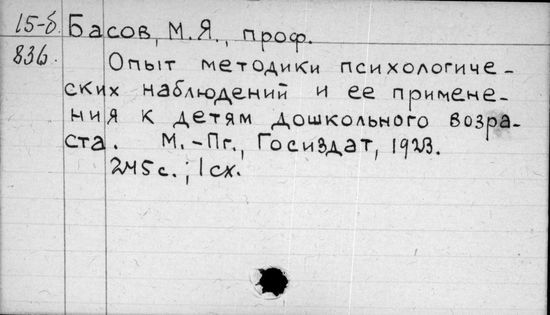 15-б. Басов, М.Я., проф.
836. Опыт методики психологиче-
ских наблюдений и ее примене-
ния к детям дошкольного возра-
ста. М.-Пг., Госиздат, 1923.
245 с.; 1 сх.